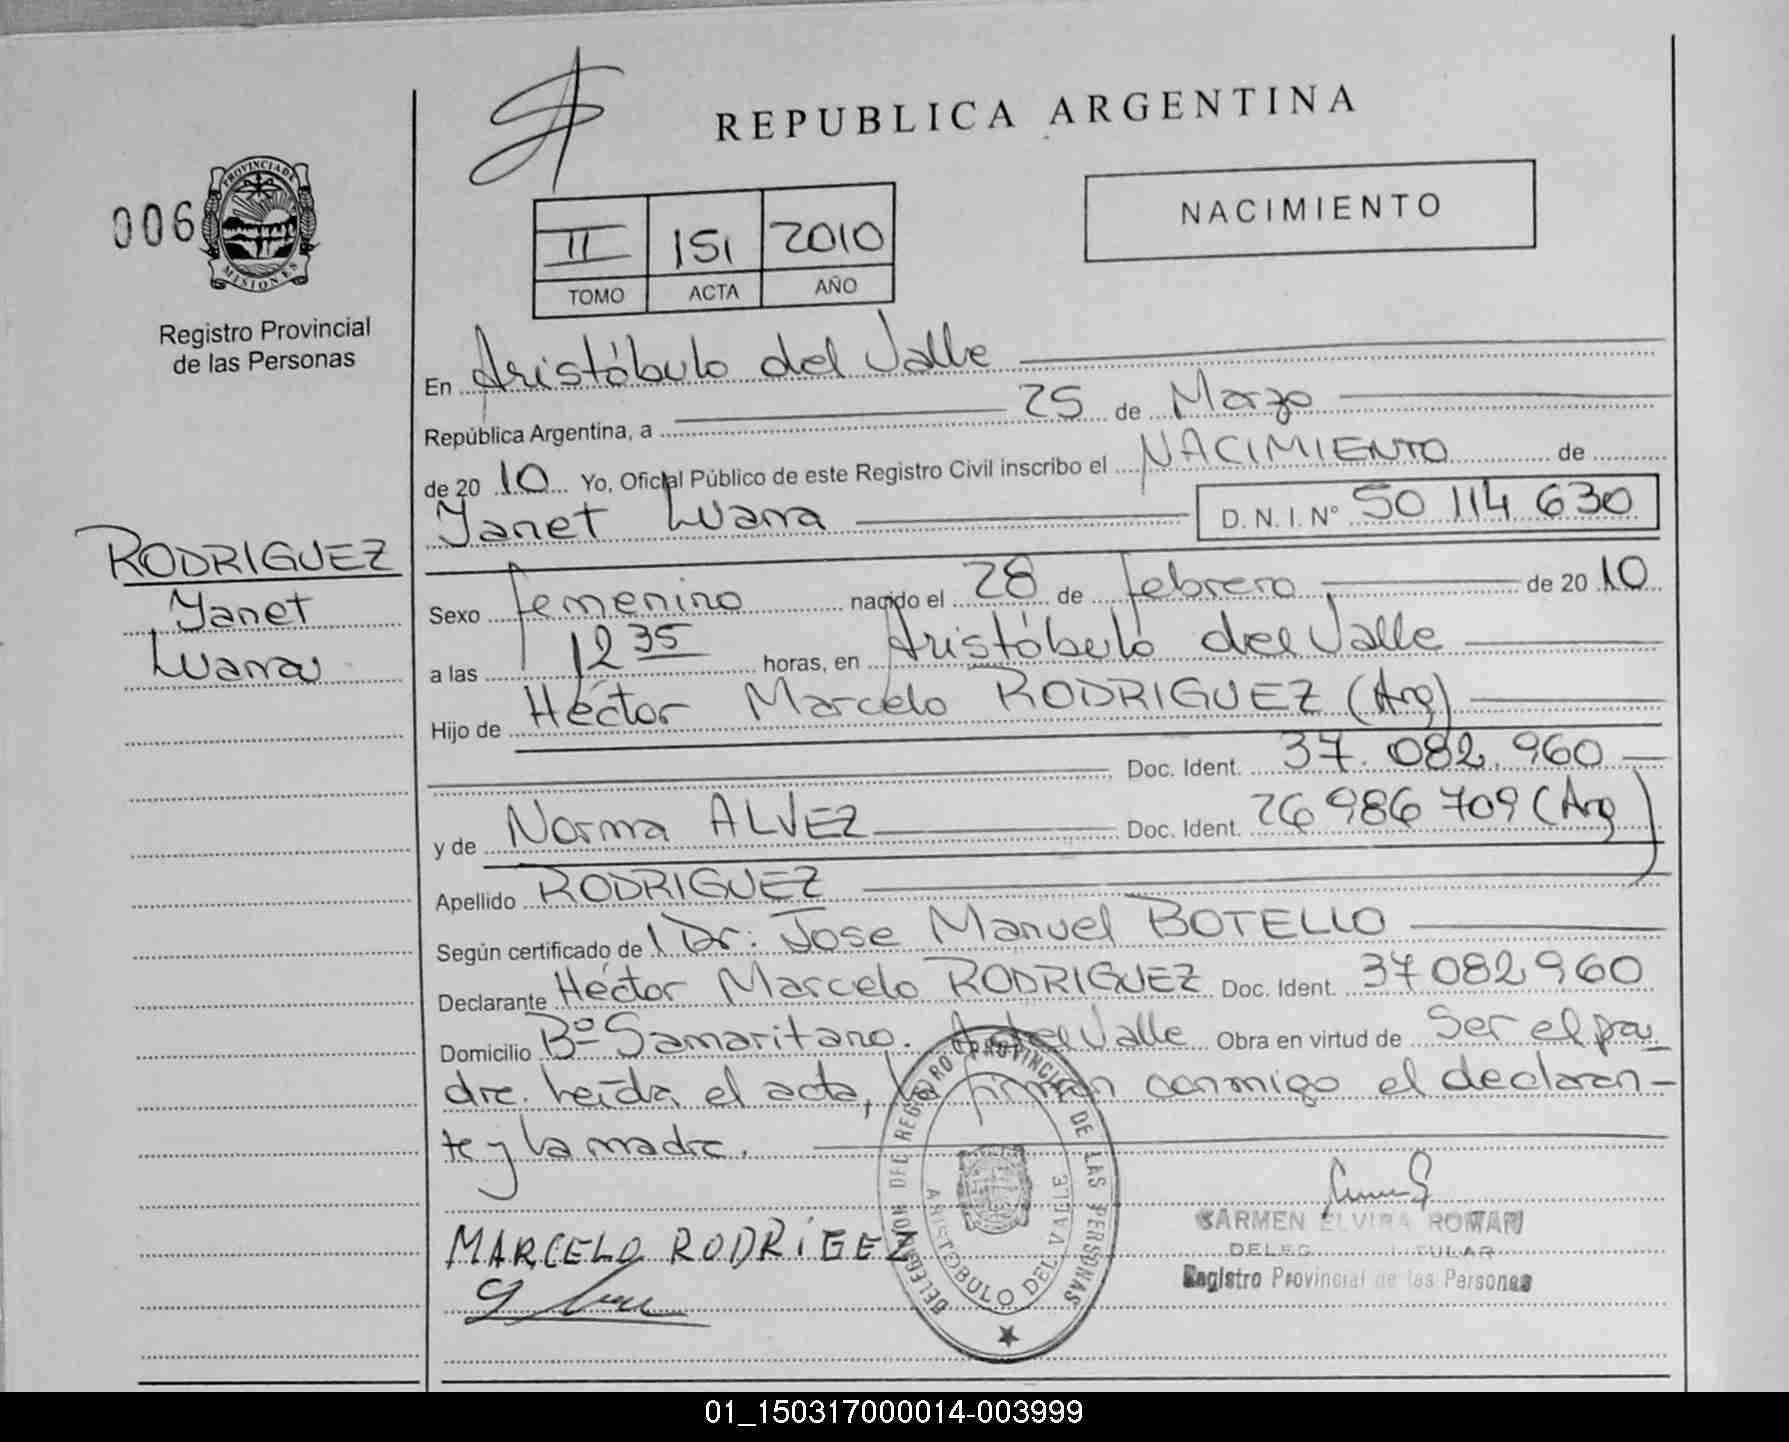 REPUBLICA ARGENTINA
006
PROVINCIA DE
MISIONES
Registro Provincial
de las Personas
II 151 2010
TOMO ACTA AÑO
NACIMIENTO
En Aristóbulo del Valle
República Argentina, a 25 de Marzo
de 20 10 Yo, Oficial Público de este Registro Civil inscribo el NACIMIENTO de
Yanet Luana D. N. I. Nº 50 114 630
RODRIGUEZ
Yanet
Luana
Sexo femenino nacido el 28 de febrero de 20 10
a las 12 35 horas, en Aristóbulo del Valle
Hijo de Héctor Marcelo RODRIGUEZ (Arg)
Doc. Ident. 37.082.960
y de Norma ALVEZ Doc. Ident. 26 986 709 (Arg)
Apellido RODRIGUEZ
Según certificado de Dr. Jose Manuel BOTELLO
Declarante Héctor Marcelo RODRIGUEZ Doc. Ident. 37 082 960
Domicilio Bº Samaritano. A del Valle Obra en virtud de Ser el pa
dre. leída el acta, la firman conmigo el declaran-
te y la madre.
MARCELO RODRIGEZ
DELEGACION DEL REGISTRO PROVINCIAL DE LAS PERSONAS
ARISTOBULO DEL VALLE
CARMEN ELVIRA ROMAN
DELEG TITULAR
Registro Provincial de las Personas
01_150317000014-003999